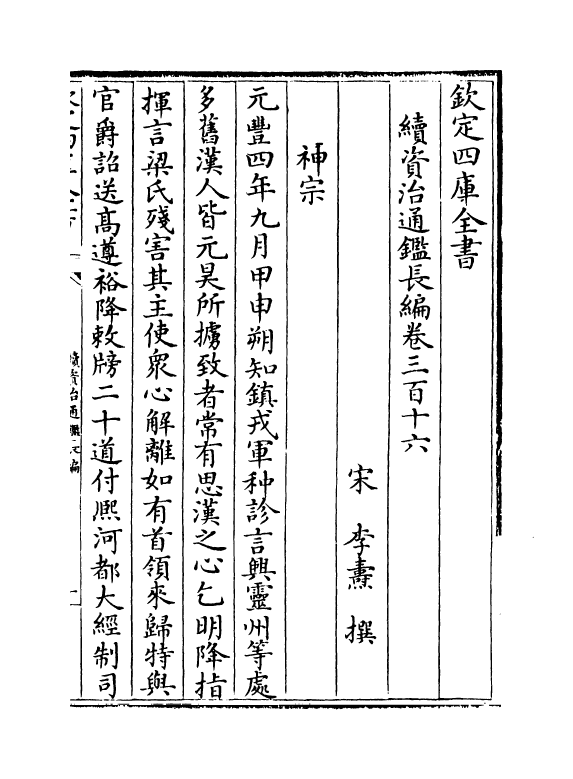 欽定四庫全書
續資治通鑑長編卷三百十六
宋　李燾　撰
神宗
元豐四年九月甲申朔知鎮戎軍种診言興靈州等處
多舊漢人皆元昊所擄致者常有思漢之心乞明降指
揮言梁氏殘害其主使衆心解離如有首領來歸特與
官爵詔送髙遵裕降敕牓二十道付熈河都大經制司